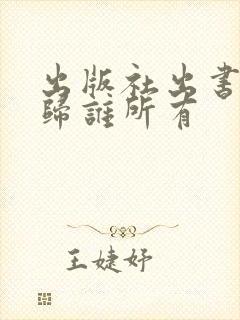 出版社出書
歸誰所有
王婕妤